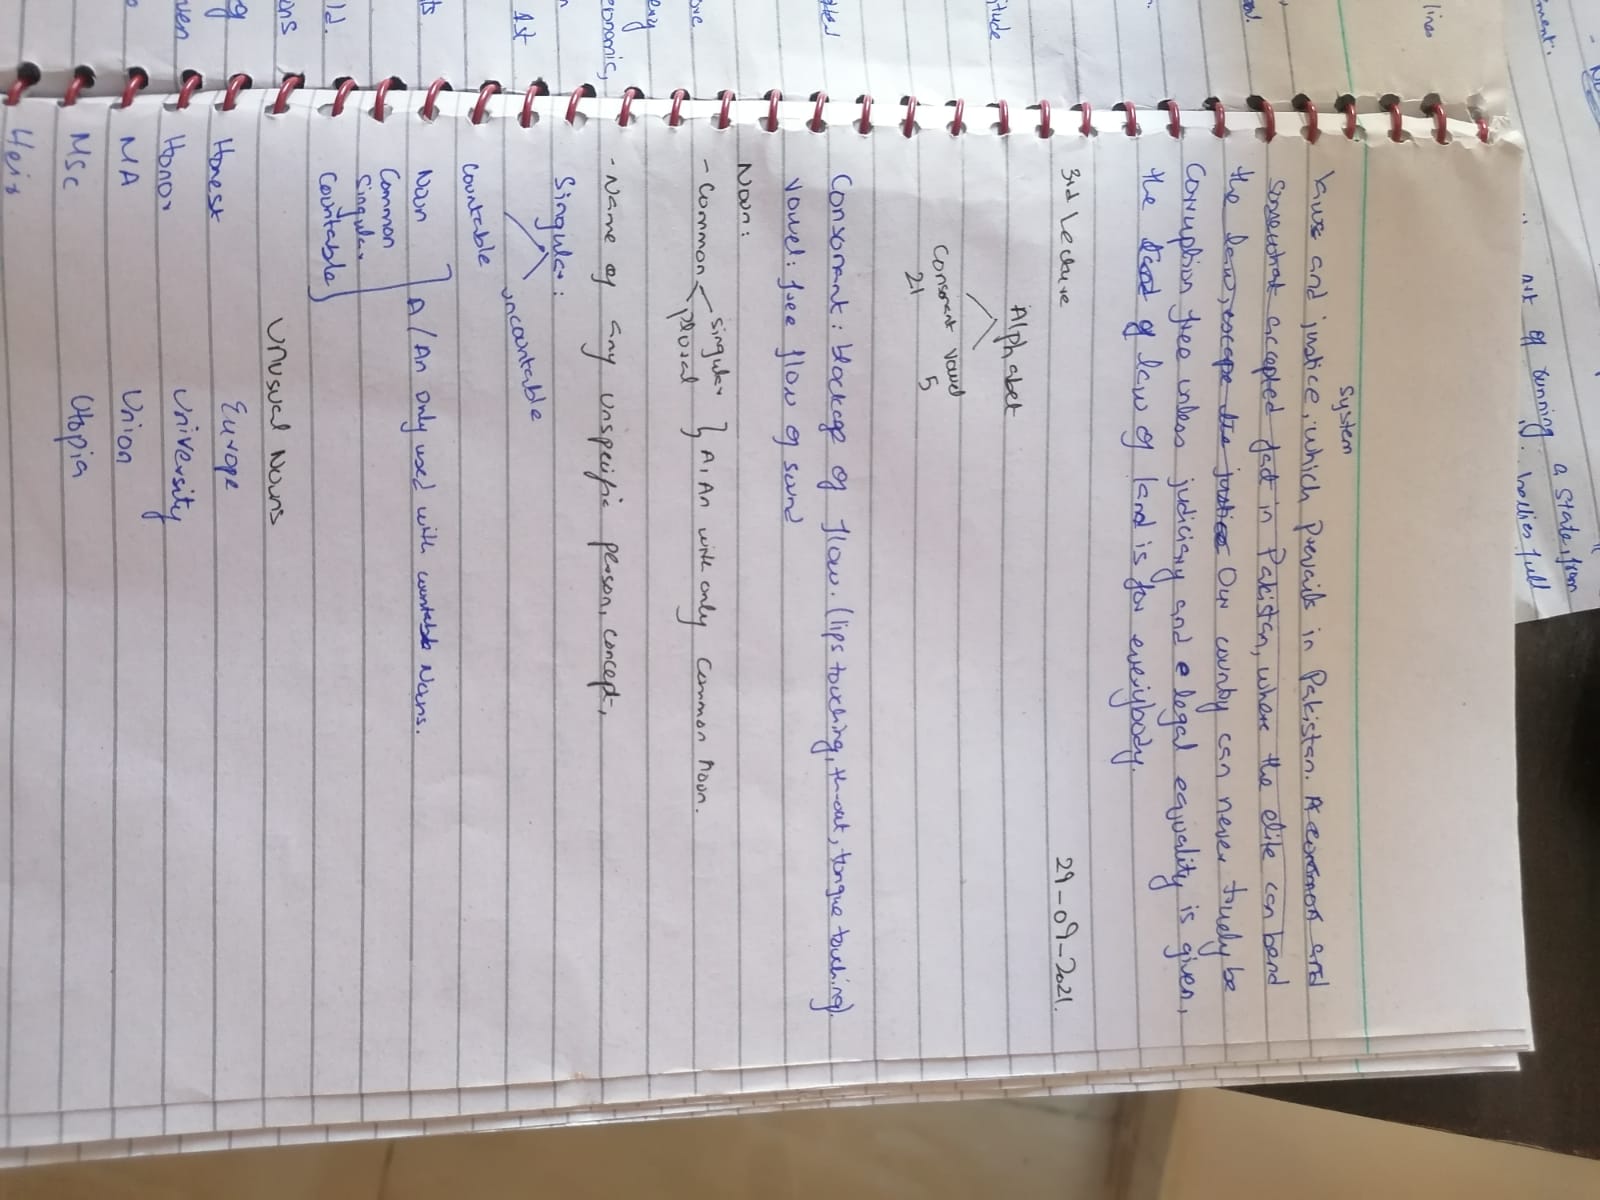 ment.
art of running a state, from
bellies full
lines
System
laws and justice, which prevails in Pakistan. A common and
somewhat accepted fact in Pakistan, where the elite can bend
the law, escape the justice Our country can never truely be
Corruption free unless judiciary and e legal equality is given,
the of law of land is for everybody.
3rd Lecture 29-09-2021.
Alphabet
Consonant Vowel
21 5
Consonant: blockage of flow. (lips touching, throat, tongue touching).
Vowel: free flow of sound
Noun:
- Common singular plural } A, An with only Common Noun.
- Name of any unspecific person, concept,
Singular:
Countable uncountable
Noun
Common
Singular
Countable
A/An only used with countable Nouns.
Unusual Nouns
Honest Europe
Honor University
MA Union
MSc Utopia
Heir
itude
ery
economic,
1st
ld.